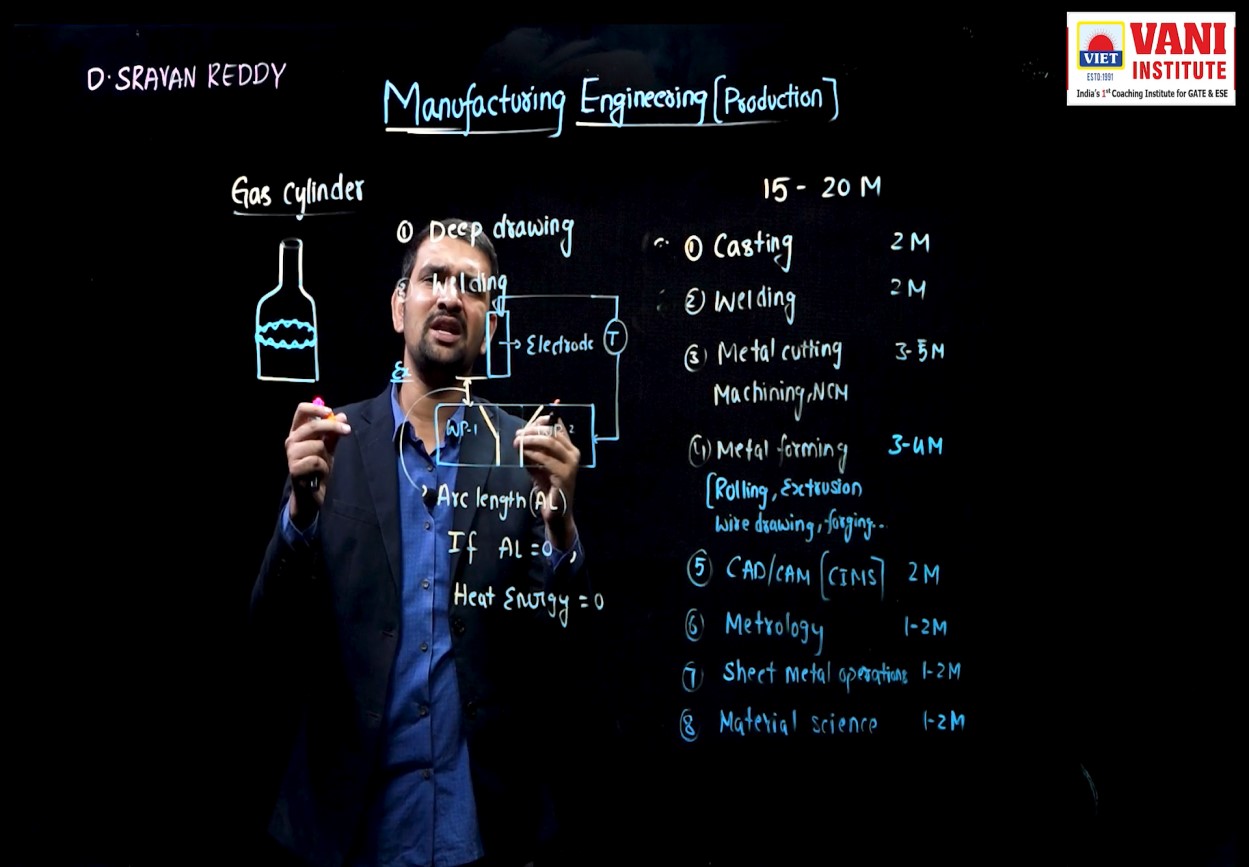 D. SRAVAN REDDY
Manufacturing Engineering [Production]
VIET
ESTD:1991
VANI
INSTITUTE
India's 1st Coaching Institute for GATE & ESE
Gas cylinder
① Deep drawing
② Welding
Electrode
T
Ex
WP-1
WP-2
Arc length (AL)
If AL = 0,
Heat Energy = 0
15 - 20 M
① Casting 2M
② Welding 2M
③ Metal cutting 3-5M
Machining, NCM
④ Metal forming 3-4M
[Rolling, Extrusion
Wire drawing, forging...
⑤ CAD/CAM [CIMS] 2M
⑥ Metrology 1-2M
⑦ Sheet metal operations 1-2M
⑧ Material science 1-2M